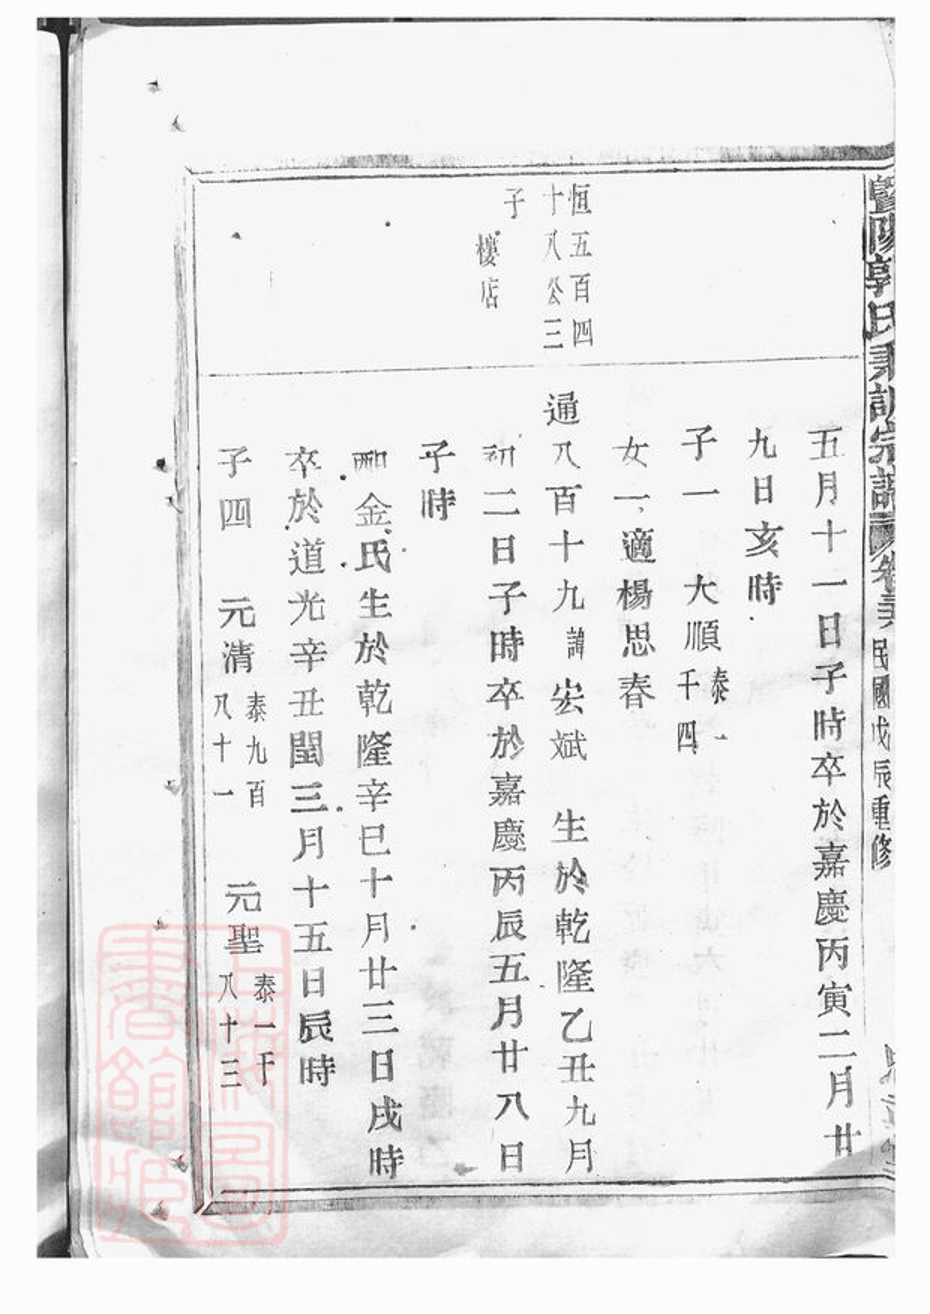 暨陽郭氏承訓宗譜 卷 民國戊辰重修
五月十一日子時卒於嘉慶丙寅二月廿
九日亥時
子一 大順 泰一
千四
女一適楊思春
恒五百四
十八公三
子
樓店
通八百十九諱宏斌 生於乾隆乙丑九月
初二日子時卒於嘉慶丙辰五月廿八日
子時
配金氏生於乾隆辛巳十月廿三日戌時
卒於道光辛丑閏三月十五日辰時
子四 元清 泰九百
八十一
元聖 泰一千
八十三
上海圖
書館藏